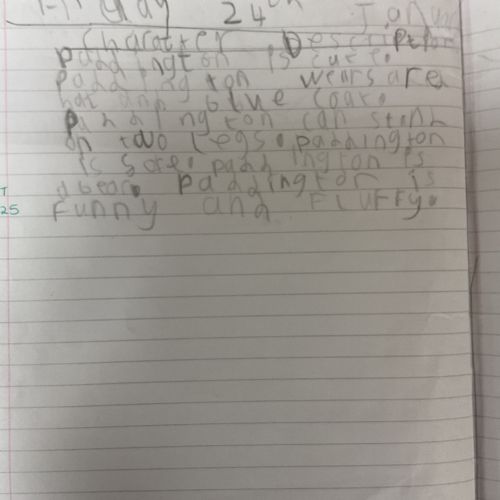 Friday 24th Janu
Character Descripti
paddington is cute.
paddington wears a red
hat and blue coat.
paddington can stand
on two legs. paddington
is sore. paddington is
a bear. paddington is
Funny and Fluffy.
T
25